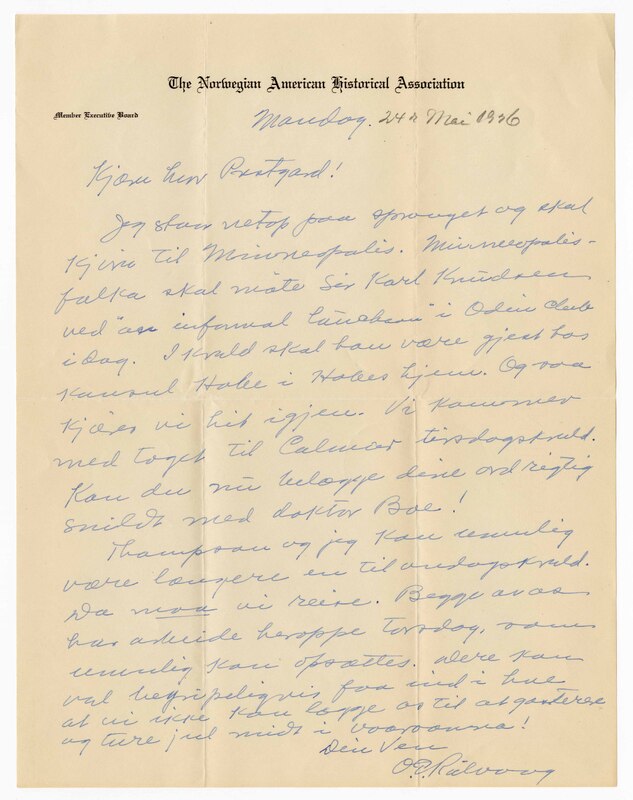 The Norwegian American Historical Association
Member Executive Board
Mandag. 24de Mai 1926
Kjære herr Prestgard!
Jeg staar netop paa spranget og skal
kjøre til Minneapolis. Minneapolis-
folka skal møte Sir Karl Knudsen
ved "an informal luncheon" i Odin Club
idag. Ikveld skal han være gjest hos
konsul Hobe i Hobes hjem. Og saa
kjøres vi hit igjen. Vi kommer
med toget til Calmar tirsdagskveld.
Kan du nu belægge dine ord rigtig
snildt med doktor Boe!
Thompson og jeg kan umulig
være længere en til ondagskveld.
Da maa vi reise. Begge av os
har arbeide heroppe torsdag, som
umulig kan opsættes. Dere kan
vel begripeligvis faa ind i hue
at vi ikke kan lægge os til at gastere
og ture jul midt i vaaronna!
Din Ven
O.E. Rølvaag